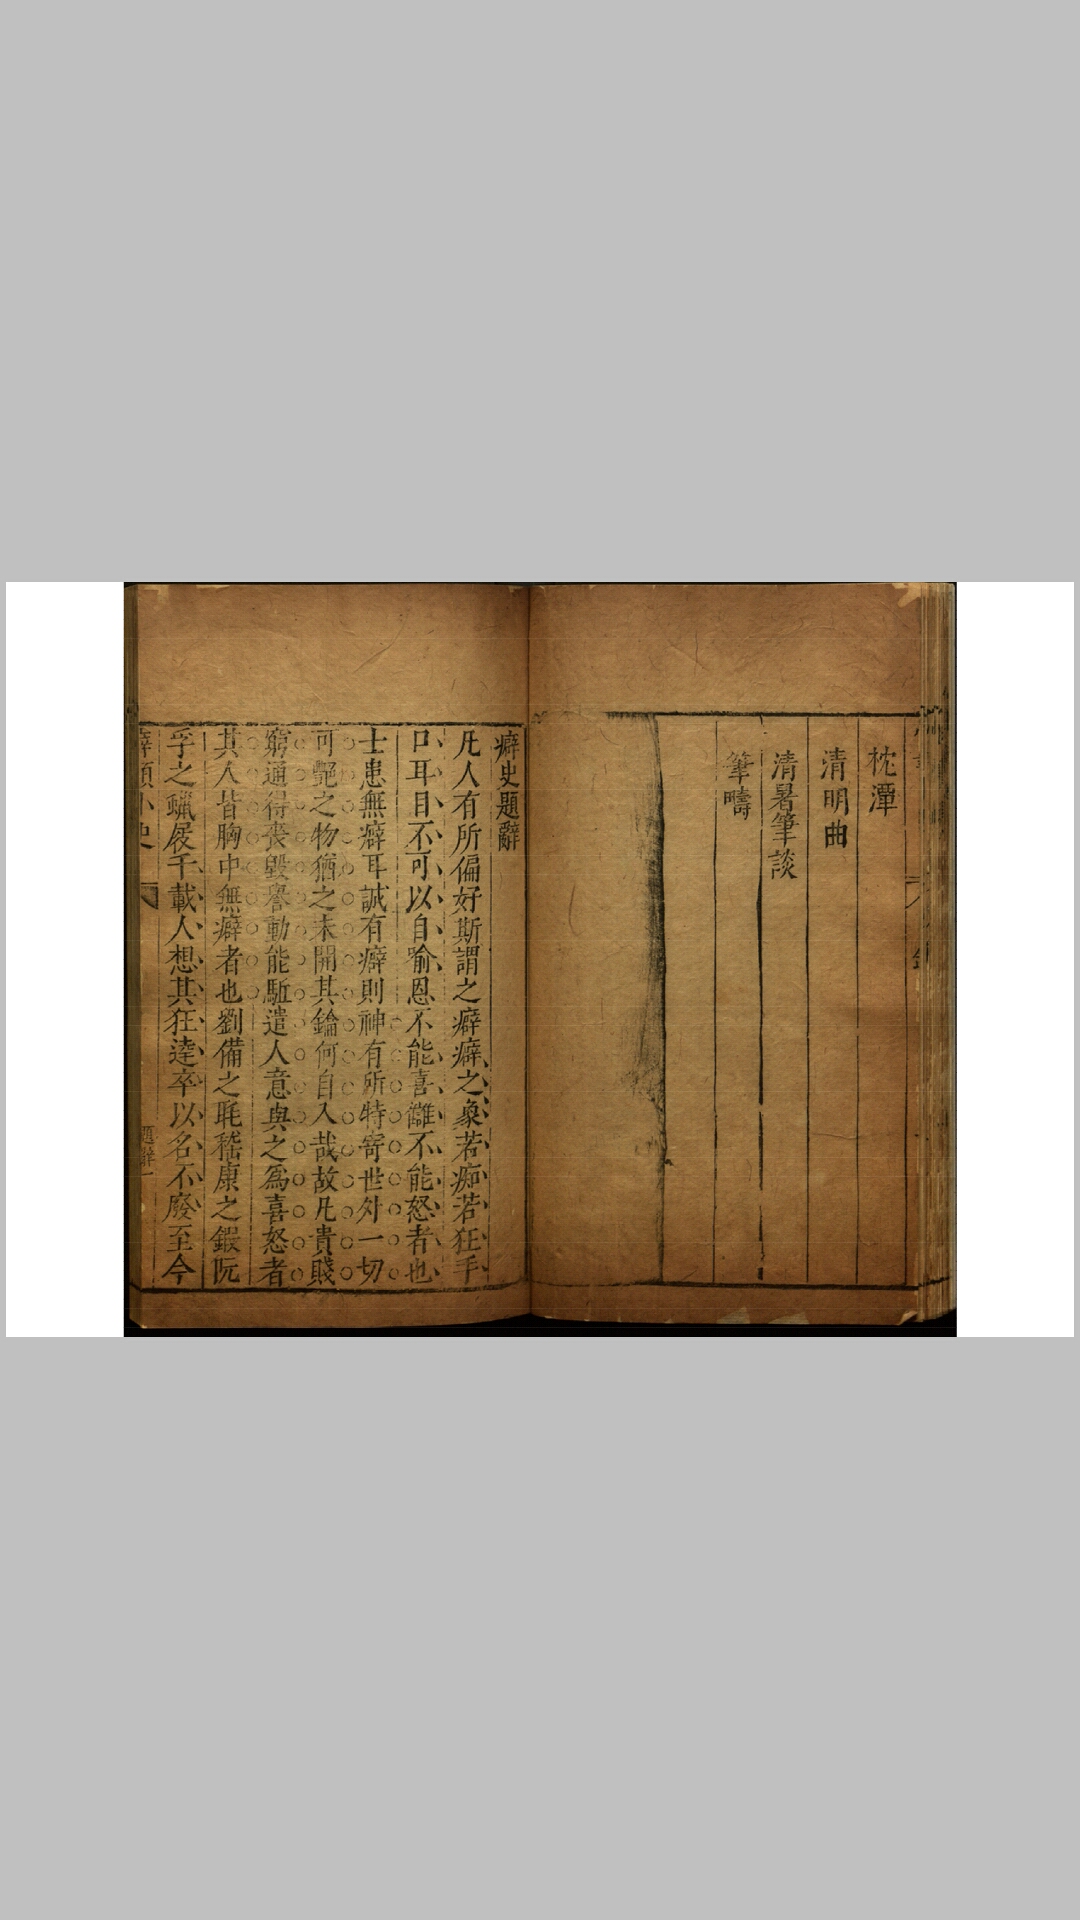 枕潭
清明曲
清暑筆談
筆疇
癖史題辭
凡人有所偏好斯謂之癖癖之象若痴若狂手
口耳目不可以自喻恩不能喜讎不能怒者也
士患無癖耳誠有癖則神有所特寄世外一切
可艷之物猶之未開其鑰何自入哉故凡貴賤
窮通得喪毀譽動能駈遣人意與之爲喜怒者
其人皆胸中無癖者也劉備之毦嵇康之鍜阮
孚之蠟屐千載人想其狂達卒以名不廢至今
癖顛小史
題辭一